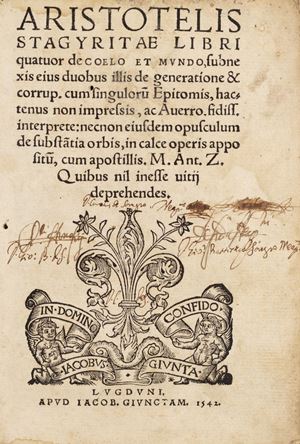 ARISTOTELIS
STAGYRITAE LIBRI
quatuor de COELO ET MVNDO, subne
xis eius duobus illis de generatione &
corrup. cum singulorū Epitomis, hac-
tenus non impressis, ac Auerro. fidiss.
interprete: necnon eiusdem opusculum
de substātia orbis, in calce operis appo
sitū, cum apostillis. M. Ant. Z.
Quibus nil inesse uitij
deprehendes.
IN·DOMINO CONFIDO
IACOBVS GIVNTA
LVGDVNI,
APVD IACOB. GIVNCTAM. 1542.